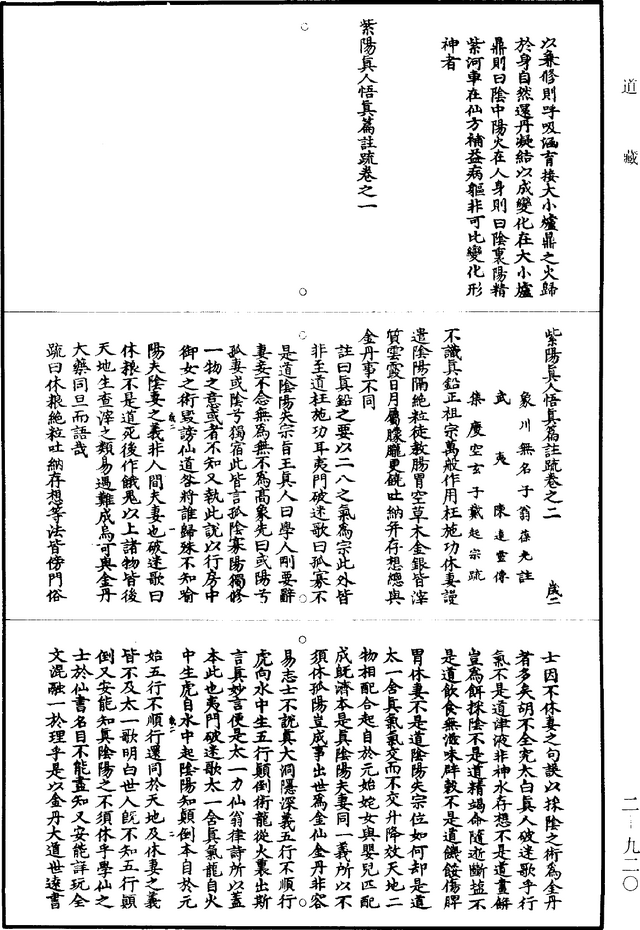 道藏
以兼修則呼吸涵育接大小爐鼎之火歸
於身自然還丹凝結以成變化在大小爐
鼎則曰陰中陽火在人身則曰陰裏陽精
紫河車在仙方補益病軀非可比變化形
神者
紫陽真人悟真篇註疏卷之一
紫陽真人悟真篇註疏卷之二 歲二
象川無名子翁葆光註
武夷陳達靈傳
集慶空玄子戴起宗疏
不識真鉛正祖宗萬般作用枉施功休妻謾
遣陰陽隔絕粒徒教腸胃空草木金銀皆滓
質雲霞日月屬朦朧更饒吐納并存想總與
金丹事不同
註曰真鉛之要以二八之氣為宗此外皆
非至道枉施功耳夷門破迷歌曰孤寡不
是道陰陽失宗旨王真人曰學人剛要辭
妻妾不念無為無不為高象先曰或陽兮
孤妻或陰兮獨宿此皆言孤陰寡陽獨修
一物之意或者不知又執此說以行房中
御女之術毀謗仙道咎將誰歸殊不知喻
陽夫陰妻之義非人間夫妻也破迷歌曰
休粮不是道死後作餓鬼以上諸物皆後
天地生查滓之類易遇難成烏可與金丹
大藥同旦而語哉
疏曰休粮絕粒吐納存想等法皆傍門俗
士因不休妻之句誤以採陰之術為金丹
者多矣胡不全究太白真人破迷歌乎行
氣不是道津液非神水存想不是道畫餅
豈為餌採陰不是道精竭命隨逝斷鹽不
是道飲食無滋味辟穀不是道饑餒傷脾
胃休妻不是道陰陽失宗位如何却是道
太一含真氣氣交而不交升降效天地二
物相配合起自於元始姹女與嬰兒匹配
成既濟本是真陰陽夫妻同一義所以不
須休孤陽豈成事出世為金仙金丹非容
易志士不說真大洞隱深義五行不順行
虎向水中生五行顛倒術龍從火裏出斯
言真妙言便是太一力仙翁律詩所以蓋
本此也夷門破迷歌太一含真氣龍自火
中生虎自水中起陰陽知顛倒本自於元
始五行不順行還同於天地及休妻之義
皆不及太一歌明白世人既不知五行顛
倒又安能知真陰陽之不須休乎學仙之
士於仙書名目不能盡知又安能詳玩全
文混融一於理乎是以金丹大道世遠書
二-九二〇